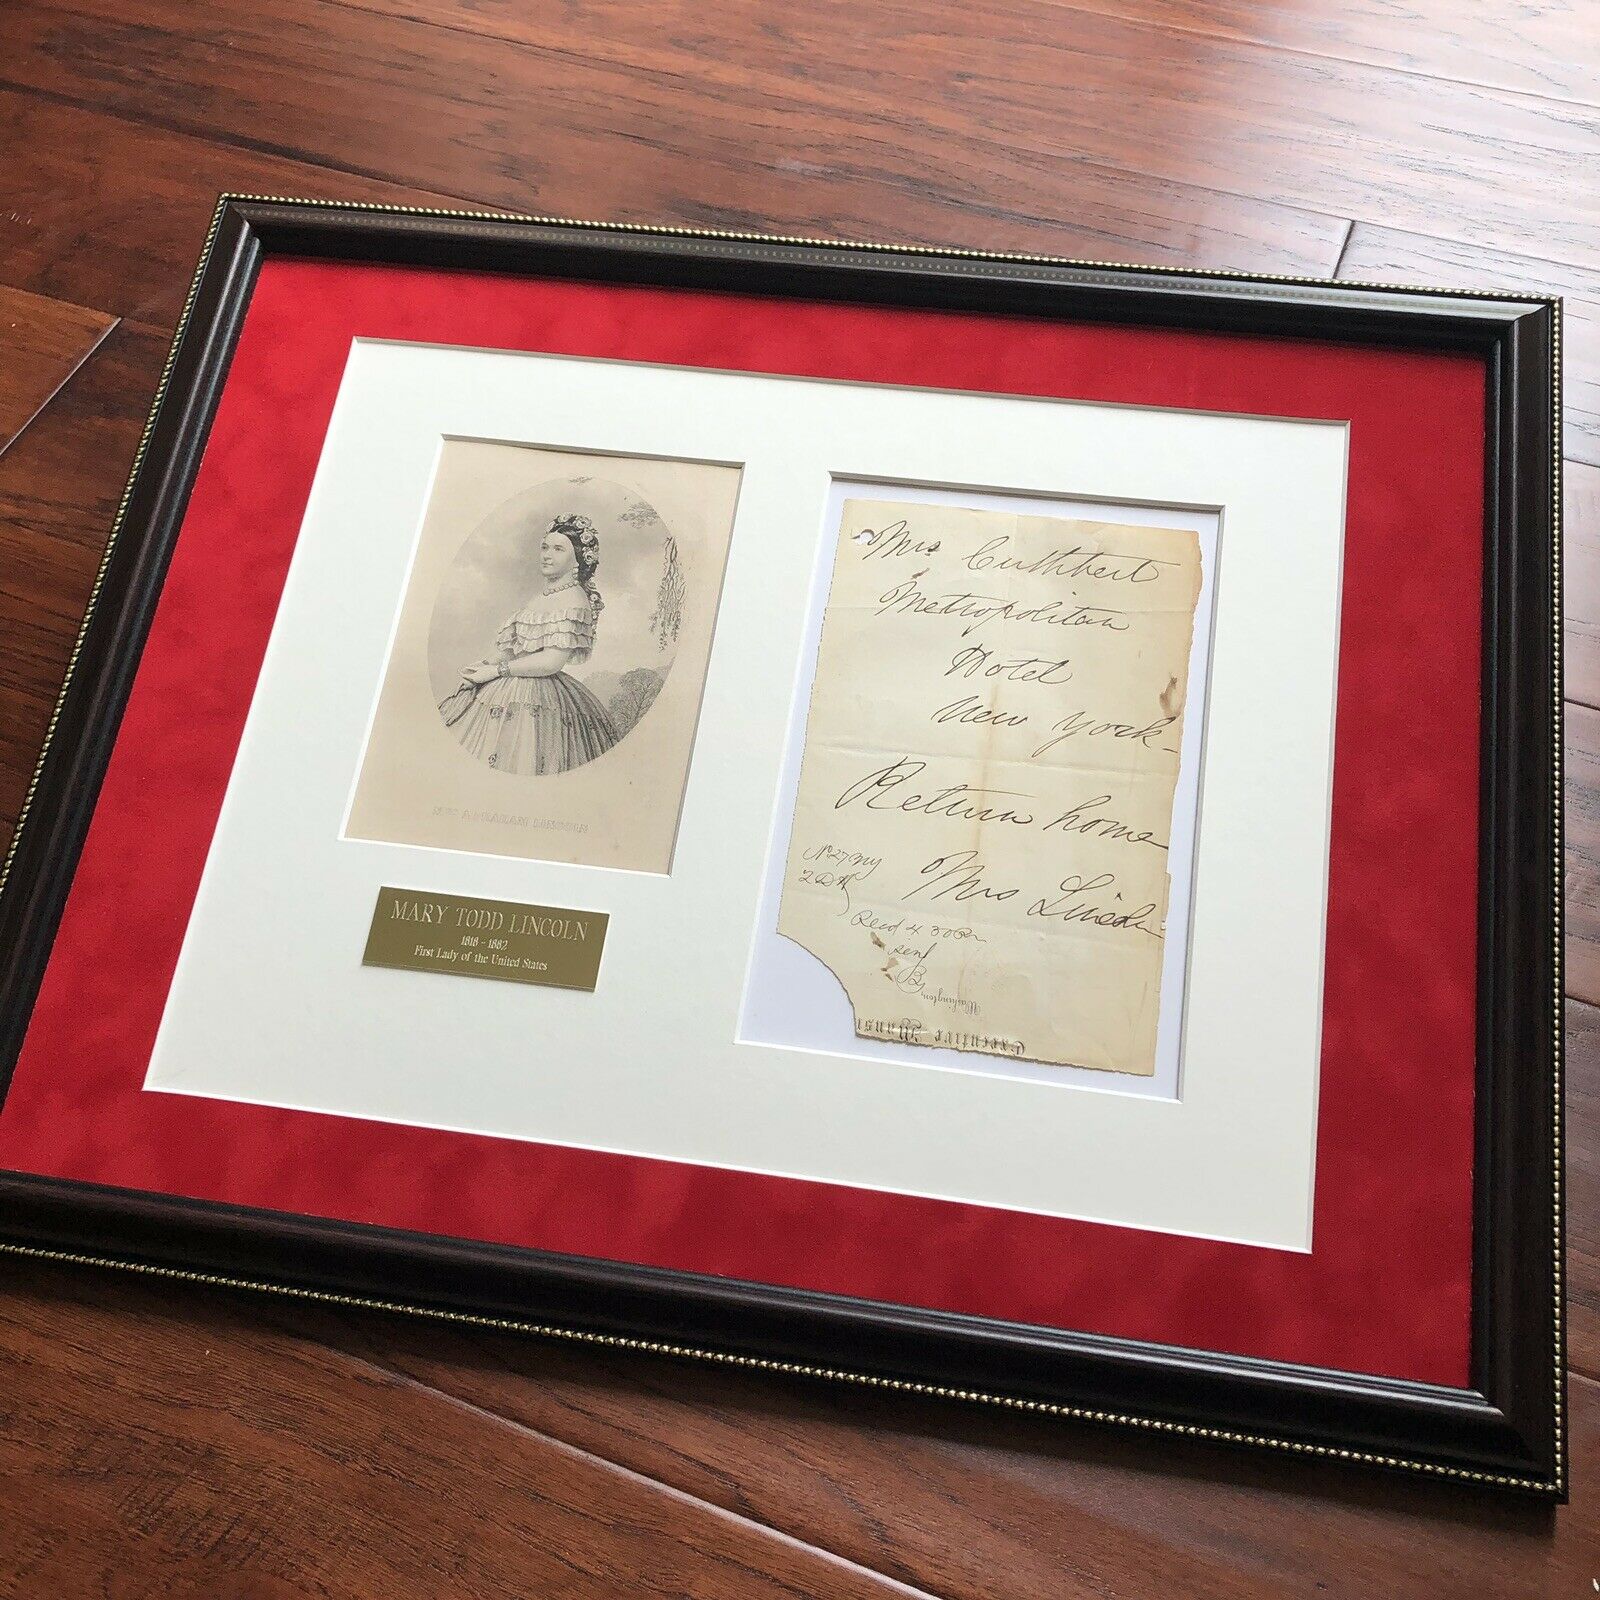 MRS. ABRAHAM LINCOLN
MARY TODD LINCOLN
1818 - 1882
First Lady of the United States
Mrs Cuthbert
Metropolitan
Hotel
New York -
Return home
Mrs Lincoln
No 27 My
Recd 4 30 Pm
B
Washington,
Executive Mansi